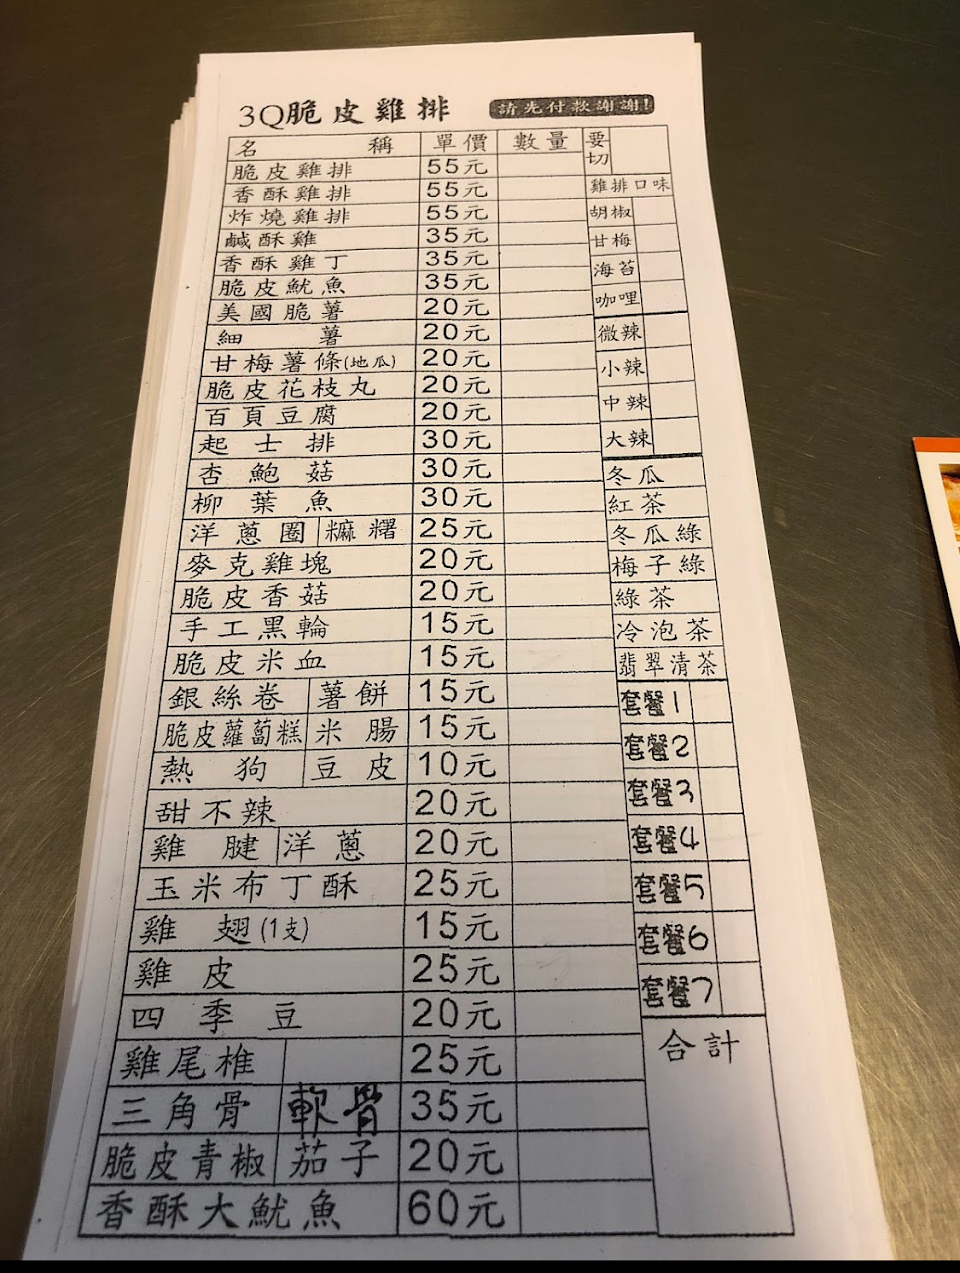 3Q脆皮雞排 請先付款謝謝!
名 稱 單價 數量 要切
脆皮雞排 55元
香酥雞排 55元
炸燒雞排 55元
鹹酥雞 35元
香酥雞丁 35元
脆皮魷魚 35元
美國脆薯 20元
細 薯 20元
甘梅薯條(地瓜) 20元
脆皮花枝丸 20元
百頁豆腐 20元
起士排 30元
杏鮑菇 30元
柳葉魚 30元
洋蔥圈 糍糬 25元
麥克雞塊 20元
脆皮香菇 20元
手工黑輪 15元
脆皮米血 15元
銀絲卷 薯餅 15元
脆皮蘿蔔糕 米腸 15元
熱狗 豆皮 10元
甜不辣 20元
雞腱 洋蔥 20元
玉米布丁酥 25元
雞翅(1支) 15元
雞皮 25元
四季豆 20元
雞尾椎 25元
三角骨 軟骨 35元
脆皮青椒 茄子 20元
香酥大魷魚 60元
雞排口味
胡椒
甘梅
海苔
咖哩
微辣
小辣
中辣
大辣
冬瓜
紅茶
冬瓜綠
梅子綠
綠茶
冷泡茶
翡翠清茶
套餐1
套餐2
套餐3
套餐4
套餐5
套餐6
套餐7
合計